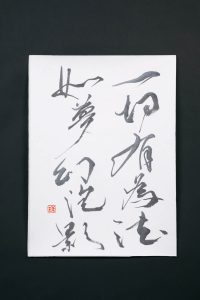 一切有為法
如夢幻泡影